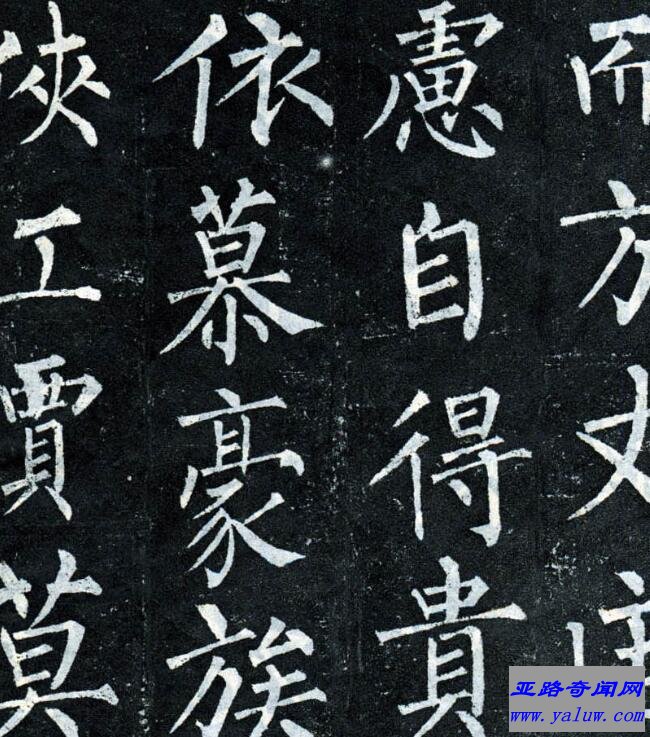 而方丈
慮自得貴
依慕豪族
俠工賈莫
亚路奇闻网
www.yaluw.com